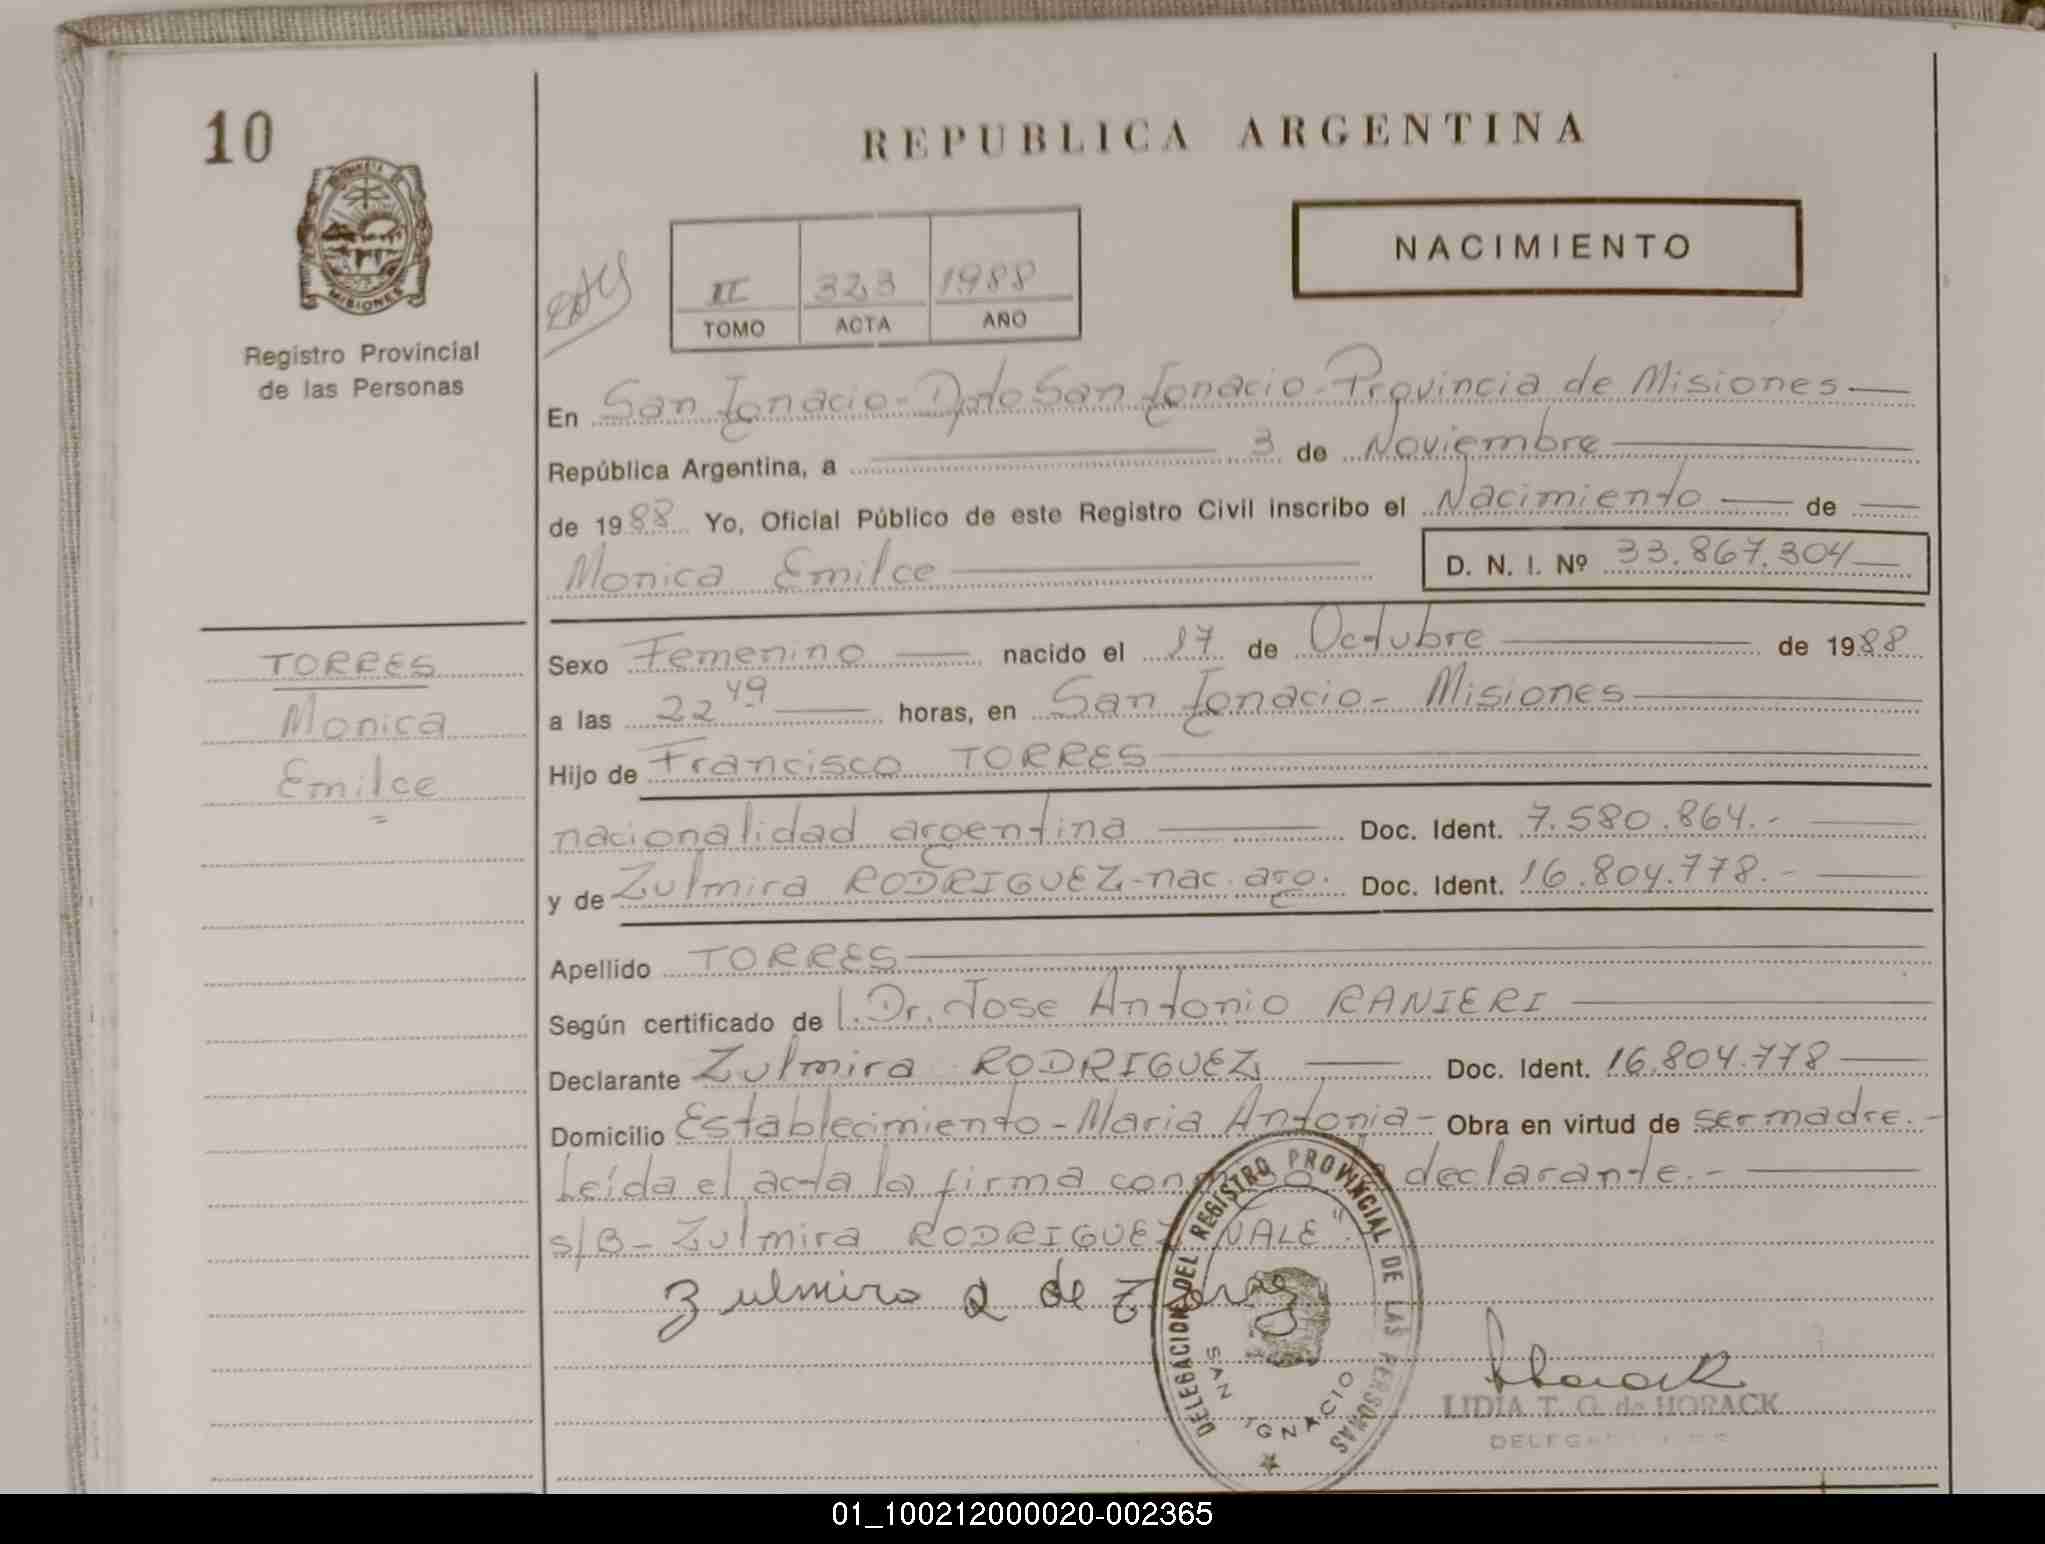 10
REPUBLICA ARGENTINA
MISIONES
Registro Provincial
de las Personas
NACIMIENTO
II 323 1988
TOMO ACTA AÑO
En San Ignacio - Dpto San Ignacio - Provincia de Misiones
República Argentina, a 3 de Noviembre
de 1988 Yo, Oficial Público de este Registro Civil inscribo el Nacimiento de
Monica Emilce D. N. I. Nº 33.867.304
TORRES
Monica
Emilce
Sexo Femenino nacido el 17 de Octubre de 1988
a las 22 49 horas, en San Ignacio - Misiones
Hijo de Francisco TORRES
nacionalidad argentina Doc. Ident. 7.580.864.-
y de Zulmira RODRIGUEZ - nac. arg. Doc. Ident. 16.804.778.-
Apellido TORRES
Según certificado de l. Dr. Jose Antonio RANIERI
Declarante Zulmira RODRIGUEZ Doc. Ident. 16.804.778
Domicilio Establecimiento - Maria Antonia - Obra en virtud de ser madre.-
Leída el acta la firma conmigo la declarante.-
s/B - Zulmira RODRIGUEZ "VALE"
Zulmira R de Torres
DELEGACION DEL REGISTRO PROVINCIAL DE LAS PERSONAS
SAN IGNACIO
LIDIA T. O. de HORACK
01_100212000020-002365